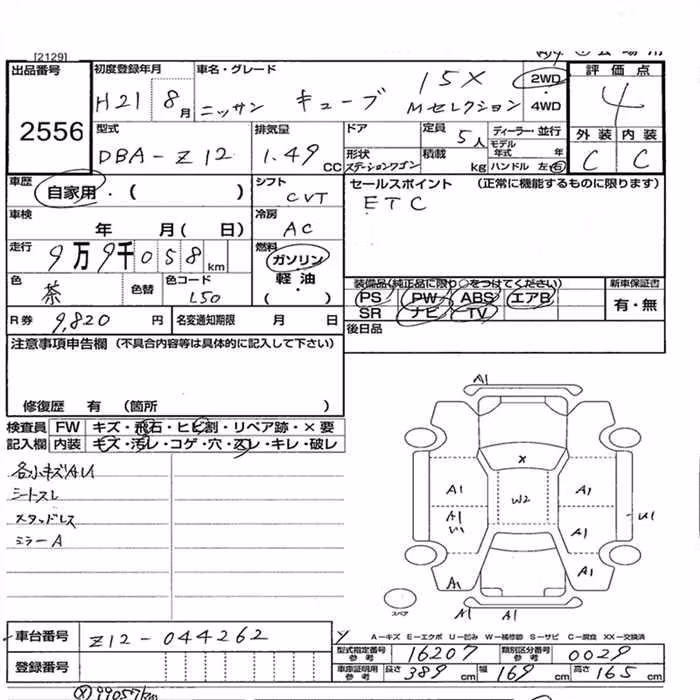 [2129]
出品番号
2556
初度登録年月
H21 8月
車名・グレード
ニッサン キューブ 15X Mセレクション
2WD
・
4WD
評価点
4
外装 内装
C C
型式
DBA-Z12
排気量
1.49 CC
ドア
形状 ステーションワゴン
定員 5人
積載 kg
ディーラー・並行
モデル年式 年
ハンドル 左・右
車歴
自家用・( )
シフト
CVT
セールスポイント (正常に機能するものに限ります)
ETC
車検
年 月( 日)
冷房
AC
走行
9万9千058km
燃料
ガソリン
軽・油
・( )
色
茶
色替
色コード
L50
装備品(純正品に限り○をつけてください)
PS PW ABS エアB
SR ナビ TV
新車保証書
有・無
R券 9,820円
名変通知期限 月 日
後日品
注意事項申告欄 (不具合内容等は具体的に記入して下さい)
修復歴 有 (箇所 )
検査員 FW キズ・飛石・ヒビ割・リペア跡・×要
記入欄 内装 キズ・汚レ・コゲ・穴・スレ・キレ・破レ
各小キズAU
シートスレ
スタッドレス
ミラーA
A1
X
A1 W2 A1
A1 U1
A1
A1 A1
スペア
A1 A1
車台番号 Z12-044262
登録番号
A−キズ E−エクボ U−凹み W−補修跡 S−サビ C−腐食 XX−交換済
型式指定番号 参考 16207
類別区分番号 参考 0029
車庫証明用 参考 長さ 389cm 幅 169cm 高さ 165cm
99057km